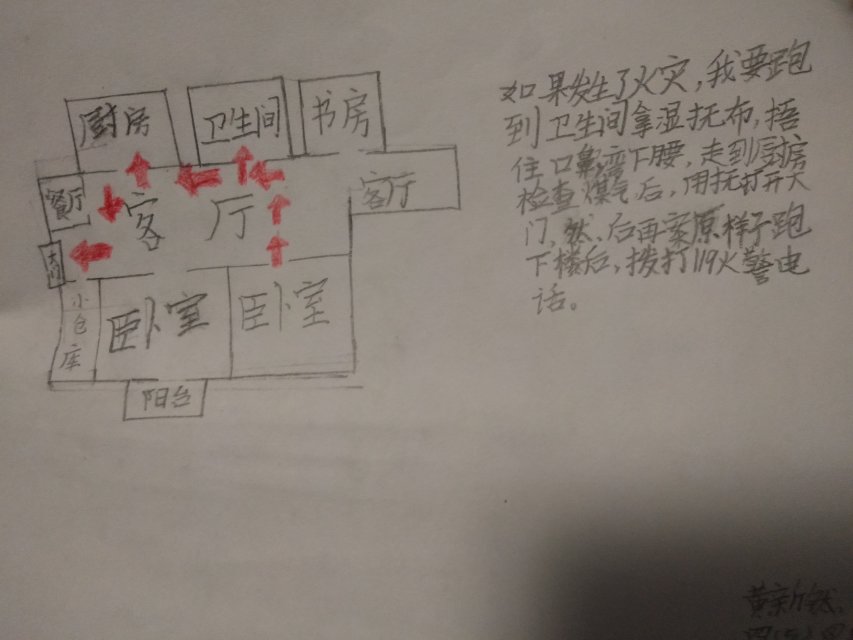 厨房
卫生间
书房
餐厅
客厅
客厅
大门
小仓库
卧室
卧室
阳台
如果发生了火灾，我要跑
到卫生间拿湿抚布，捂
住口鼻弯下腰，走到厨房
检查煤气后，用抚打开大
门，然后再案原样子跑
下楼后，拨打119火警电
话。